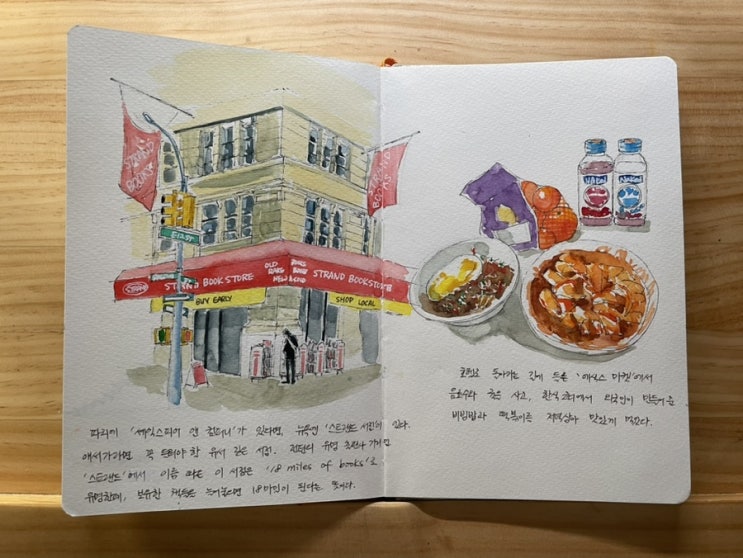 STRAND BOOKS
STRAND BOOKS
E 12 ST
STRAND
STRAND BOOK STORE
OLD RARE NEW
STRAND BOOKSTORE
BUY EARLY
SHOP LOCAL
파리에 '셰익스피어 앤 컴퍼니'가 있다면, 뉴욕엔 '스트랜드 서점'이 있다.
애서가라면 꼭 들려야 할 유서 깊은 서점. 런던의 유명 거리인
'스트랜드'에서 이름 따온 이 서점은 '18 miles of books'로
유명한데, 보유한 책들을 늘어놓으면 18마일이 된다는 뜻이다.
돌아가는 길에 들른 '에식스 마켓'에서
음료수와 귤을 사고, 한식코너에서 타국인이 만들어준
비빔밥과 떡볶이를 저녁삼아 맛있게 먹었다.